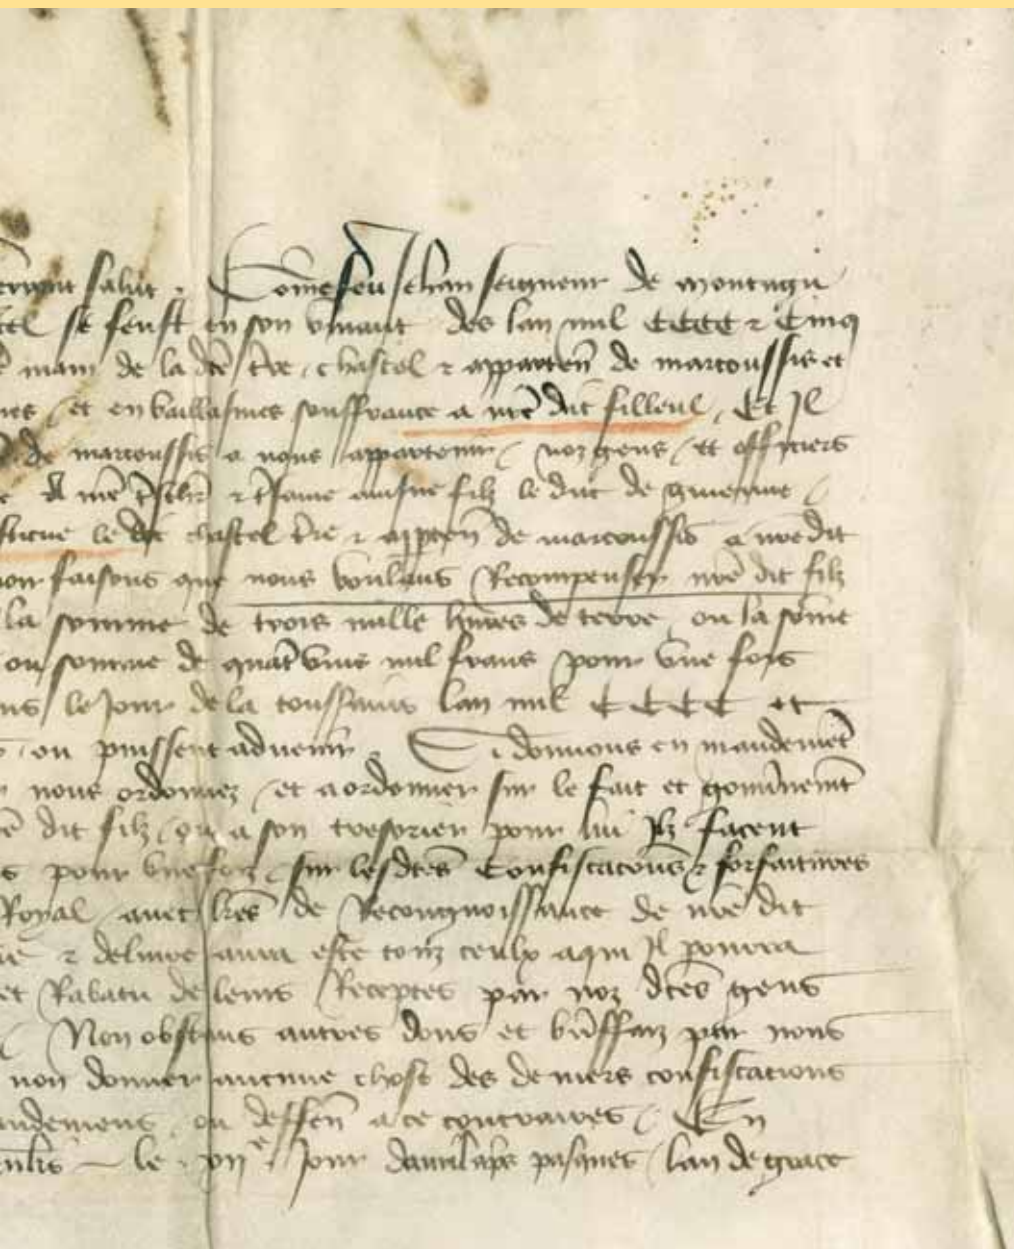 salut. Comme feu Jehan seigneur de montagu
se feust en son vivant des lan mil CCCC & Cinq
main de la dcē t̄re, chastel & apparten̄ de marcoussis et
et en baillasmes souffrance a nr̄e dit filleul, Et Il
de marcoussis a nous appartenir, noz gens, et officiers
A nr̄e & ainsne filz le duc de guienne,
le dit chastel t̄re & appten̄ de marcoussis a nr̄e dit
faisons que nous voulans Recompenser nr̄e dit filz
la somme de trois mille livres de terre, ou la som̄e
ou somme de quat̄ vins mil frans pour vne fois
le Jour de la toussains lan mil CCCC et
ou puissent advenir. Si donnons en mandem̄et
nous ordonnez, et a ordonner sur le fait et gouv̄nem̄t
dit filz, ou a son tresorier pour lui Ilz facent
pour vne foiz, sur lesdc̄es Confiscac̄ons & forfaitures
Royal, avec l̄res de Recongnoissance de nr̄e dit
& delivre aura este tous ceulx a qui Il pourra
et Rabatu de leurs Receptes par noz dc̄es gens
Non obstans autres dons et bien̄ffaiz par nous
non donner aucune chose des deniers confiscations
ou deffen̄ a ce contraires, En
le Jour davril apres pasques, lan de grace